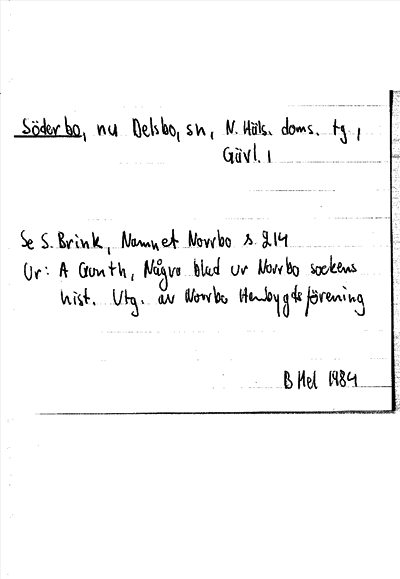 Söderbo, nu Delsbo, sn, N. Häls. doms. tg,
Gävl. l
Se S. Brink, Namnet Norrbo s. 214
Ur: A Gunth, Några blad ur Norrbo sockens
hist. Utg. av Norrbo Hembygdsförening
B Hel 1984